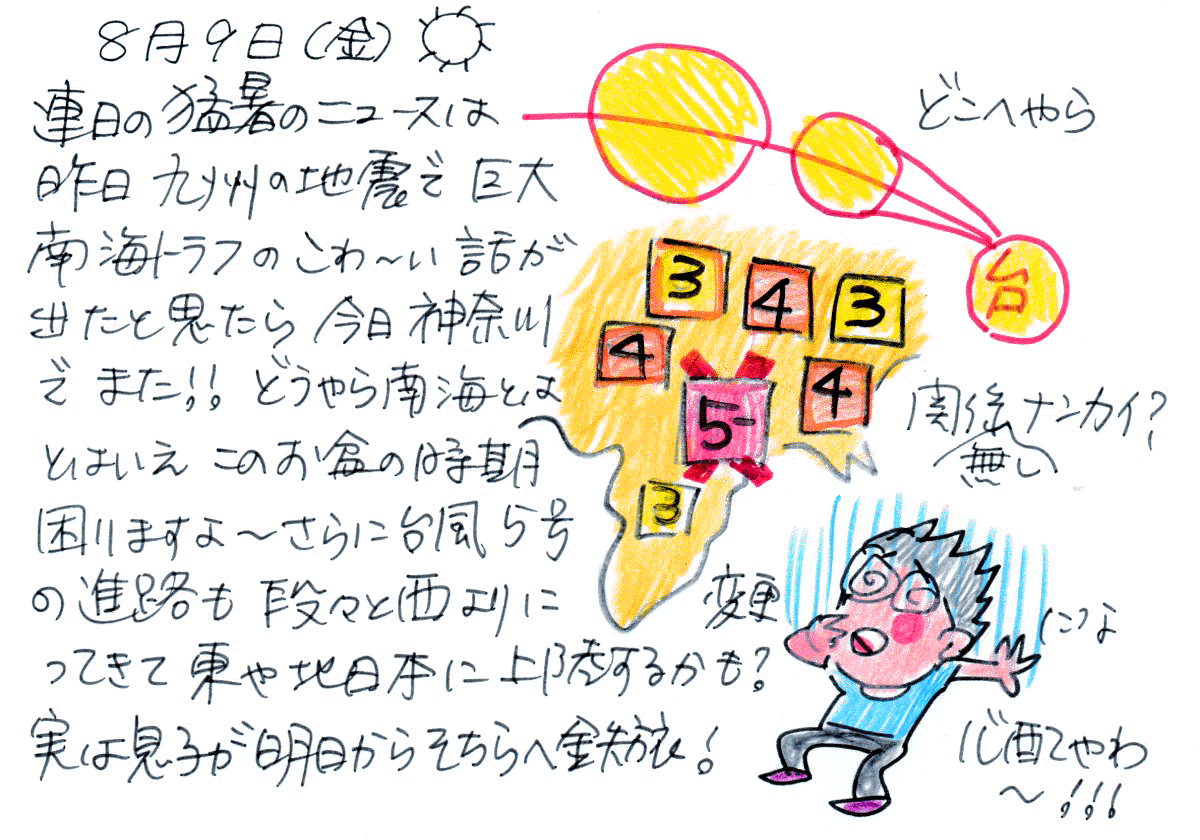 8月9日(金)
連日の猛暑のニュースは どこへやら
昨日九州の地震で巨大
南海トラフのこわ〜い話が
出たと思たら今日神奈川
でまた!!どうやら南海とは 関係ナンカイ?
無い
とはいえこのお盆の時期
困りますよ〜さらに台風5号
の進路も段々と西よりに 変更 にな
ってきて東や地日本に上陸するかも?
実は息子が明日からそちらへ鉄旅! 心配やわ
〜!!!
台
3 4 3
4 5- 4
3